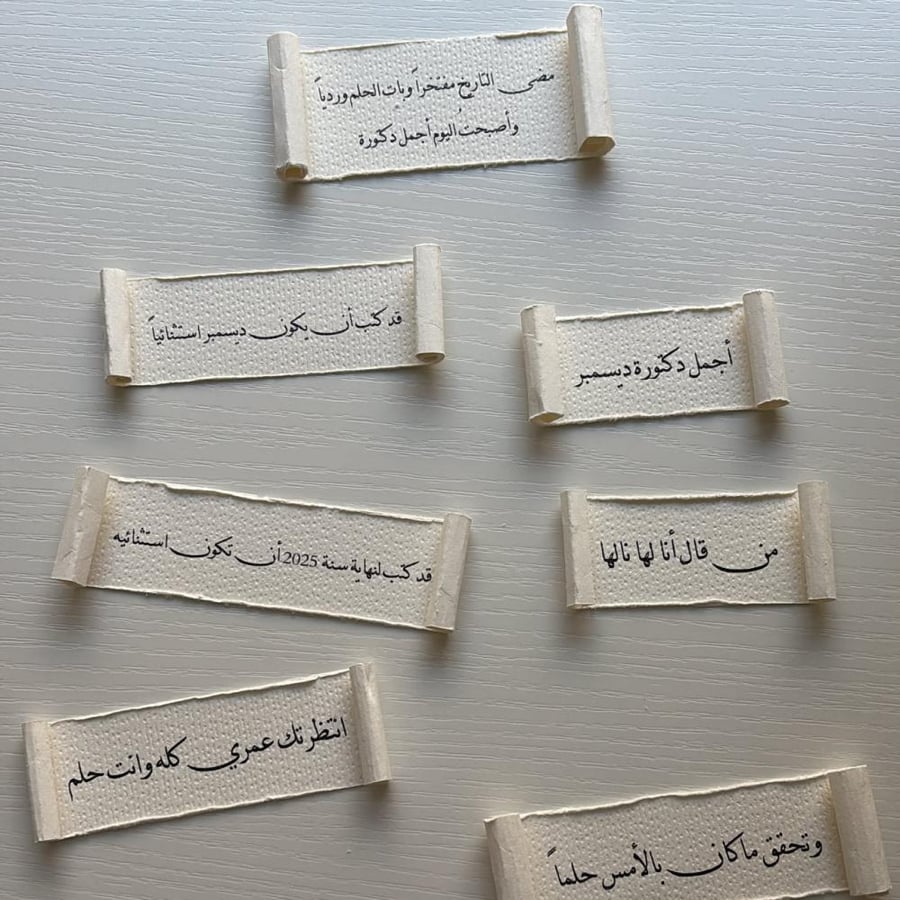 مضى التاريخ مفتخراً وبات الحلم وردياً
وأصبحتُ اليوم أجمل دكتورة
قد كتب أن يكون ديسمبر استثنائياً
أجمل دكتورة ديسمبر
قد كتب لنهاية سنة 2025 أن تكون استثنائيه
من قال أنا لها نالها
انتظرتك عمري كله وانت حلم
وتحقق ماكان بالأمس حلماً